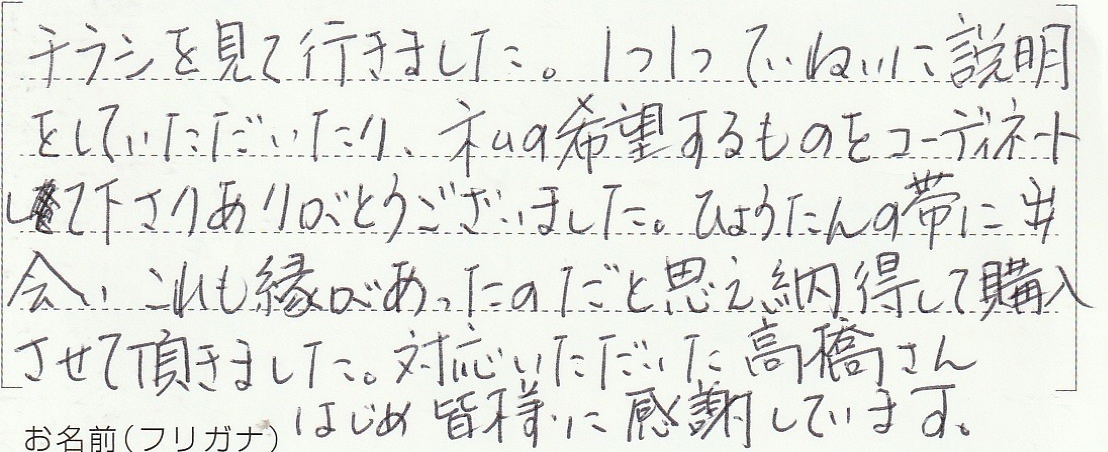 チラシを見て行きました。1つ1つていねいに説明
をしていただいたり、私の希望するものをコーディネート
して下さりありがとうございました。ひょうたんの帯に出
会い、これも縁があったのだと思え納得して購入
させて頂きました。対応いただいた高橋さん
はじめ皆様に感謝しています。
お名前(フリガナ)